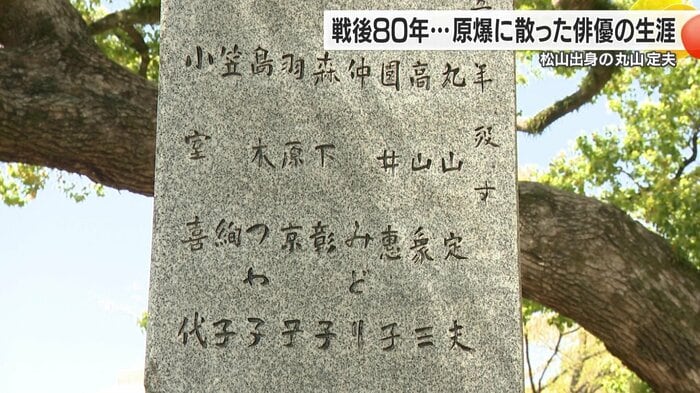 戦後80年…原爆に散った俳優の生涯
松山出身の丸山 定夫
年 殁す
丸山定夫
高山象三
園井惠子
仲みどり
森下彰子
羽原京子
島木つや子
笠絅子
小室喜代